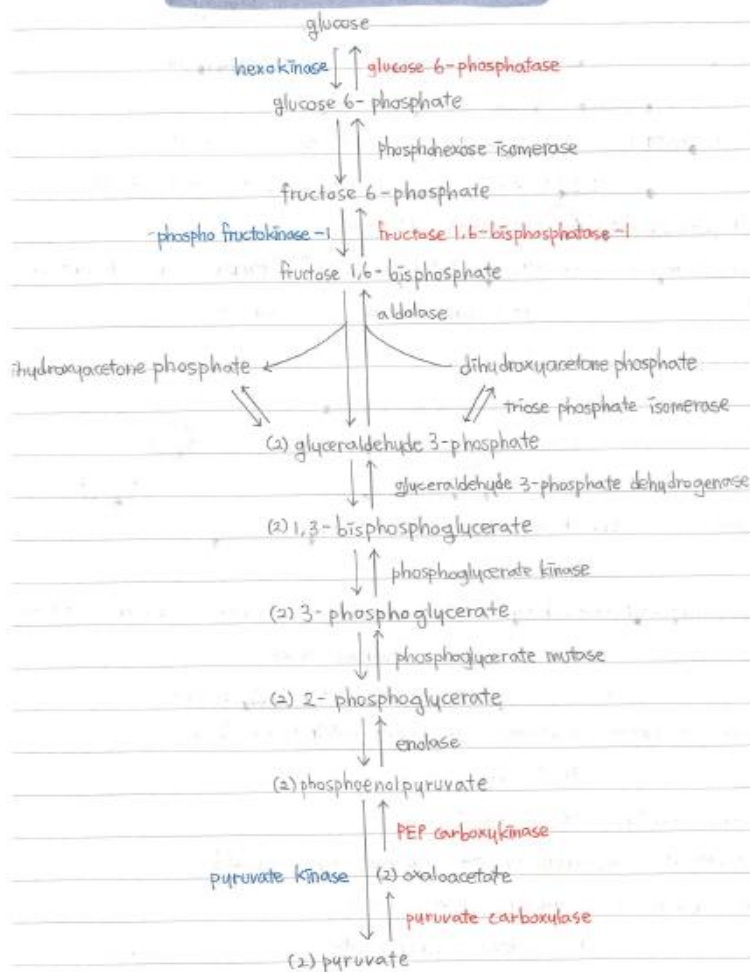 glucose
hexokinase glucose 6-phosphatase
glucose 6-phosphate
phosphohexose isomerase
fructose 6-phosphate
phospho fructokinase-1 fructose 1,6-bisphosphatase-1
fructose 1,6-bisphosphate
aldolase
ihydroxyacetone phosphate dihydroxyacetone phosphate
triose phosphate isomerase
(2) glyceraldehyde 3-phosphate
glyceraldehyde 3-phosphate dehydrogenase
(2) 1,3-bisphosphoglycerate
phosphoglycerate kinase
(2) 3-phosphoglycerate
phosphoglycerate mutase
(2) 2-phosphoglycerate
enolase
(2) phosphoenolpyruvate
PEP carboxykinase
pyruvate kinase (2) oxaloacetate
pyruvate carboxylase
(2) pyruvate